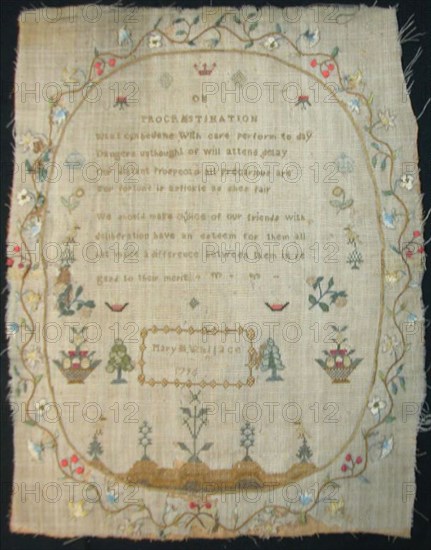 ON
PROCRASTINATION
What can be done with care perform to day
Dangers unthought of will attend delay
Our distant prospects all precarious are
And fortune is as fickle as shee fair
We should make choice of our friends with
deliberation have an esteem for them all
but make a difference between them in re
gard to their merit
Mary Wallace